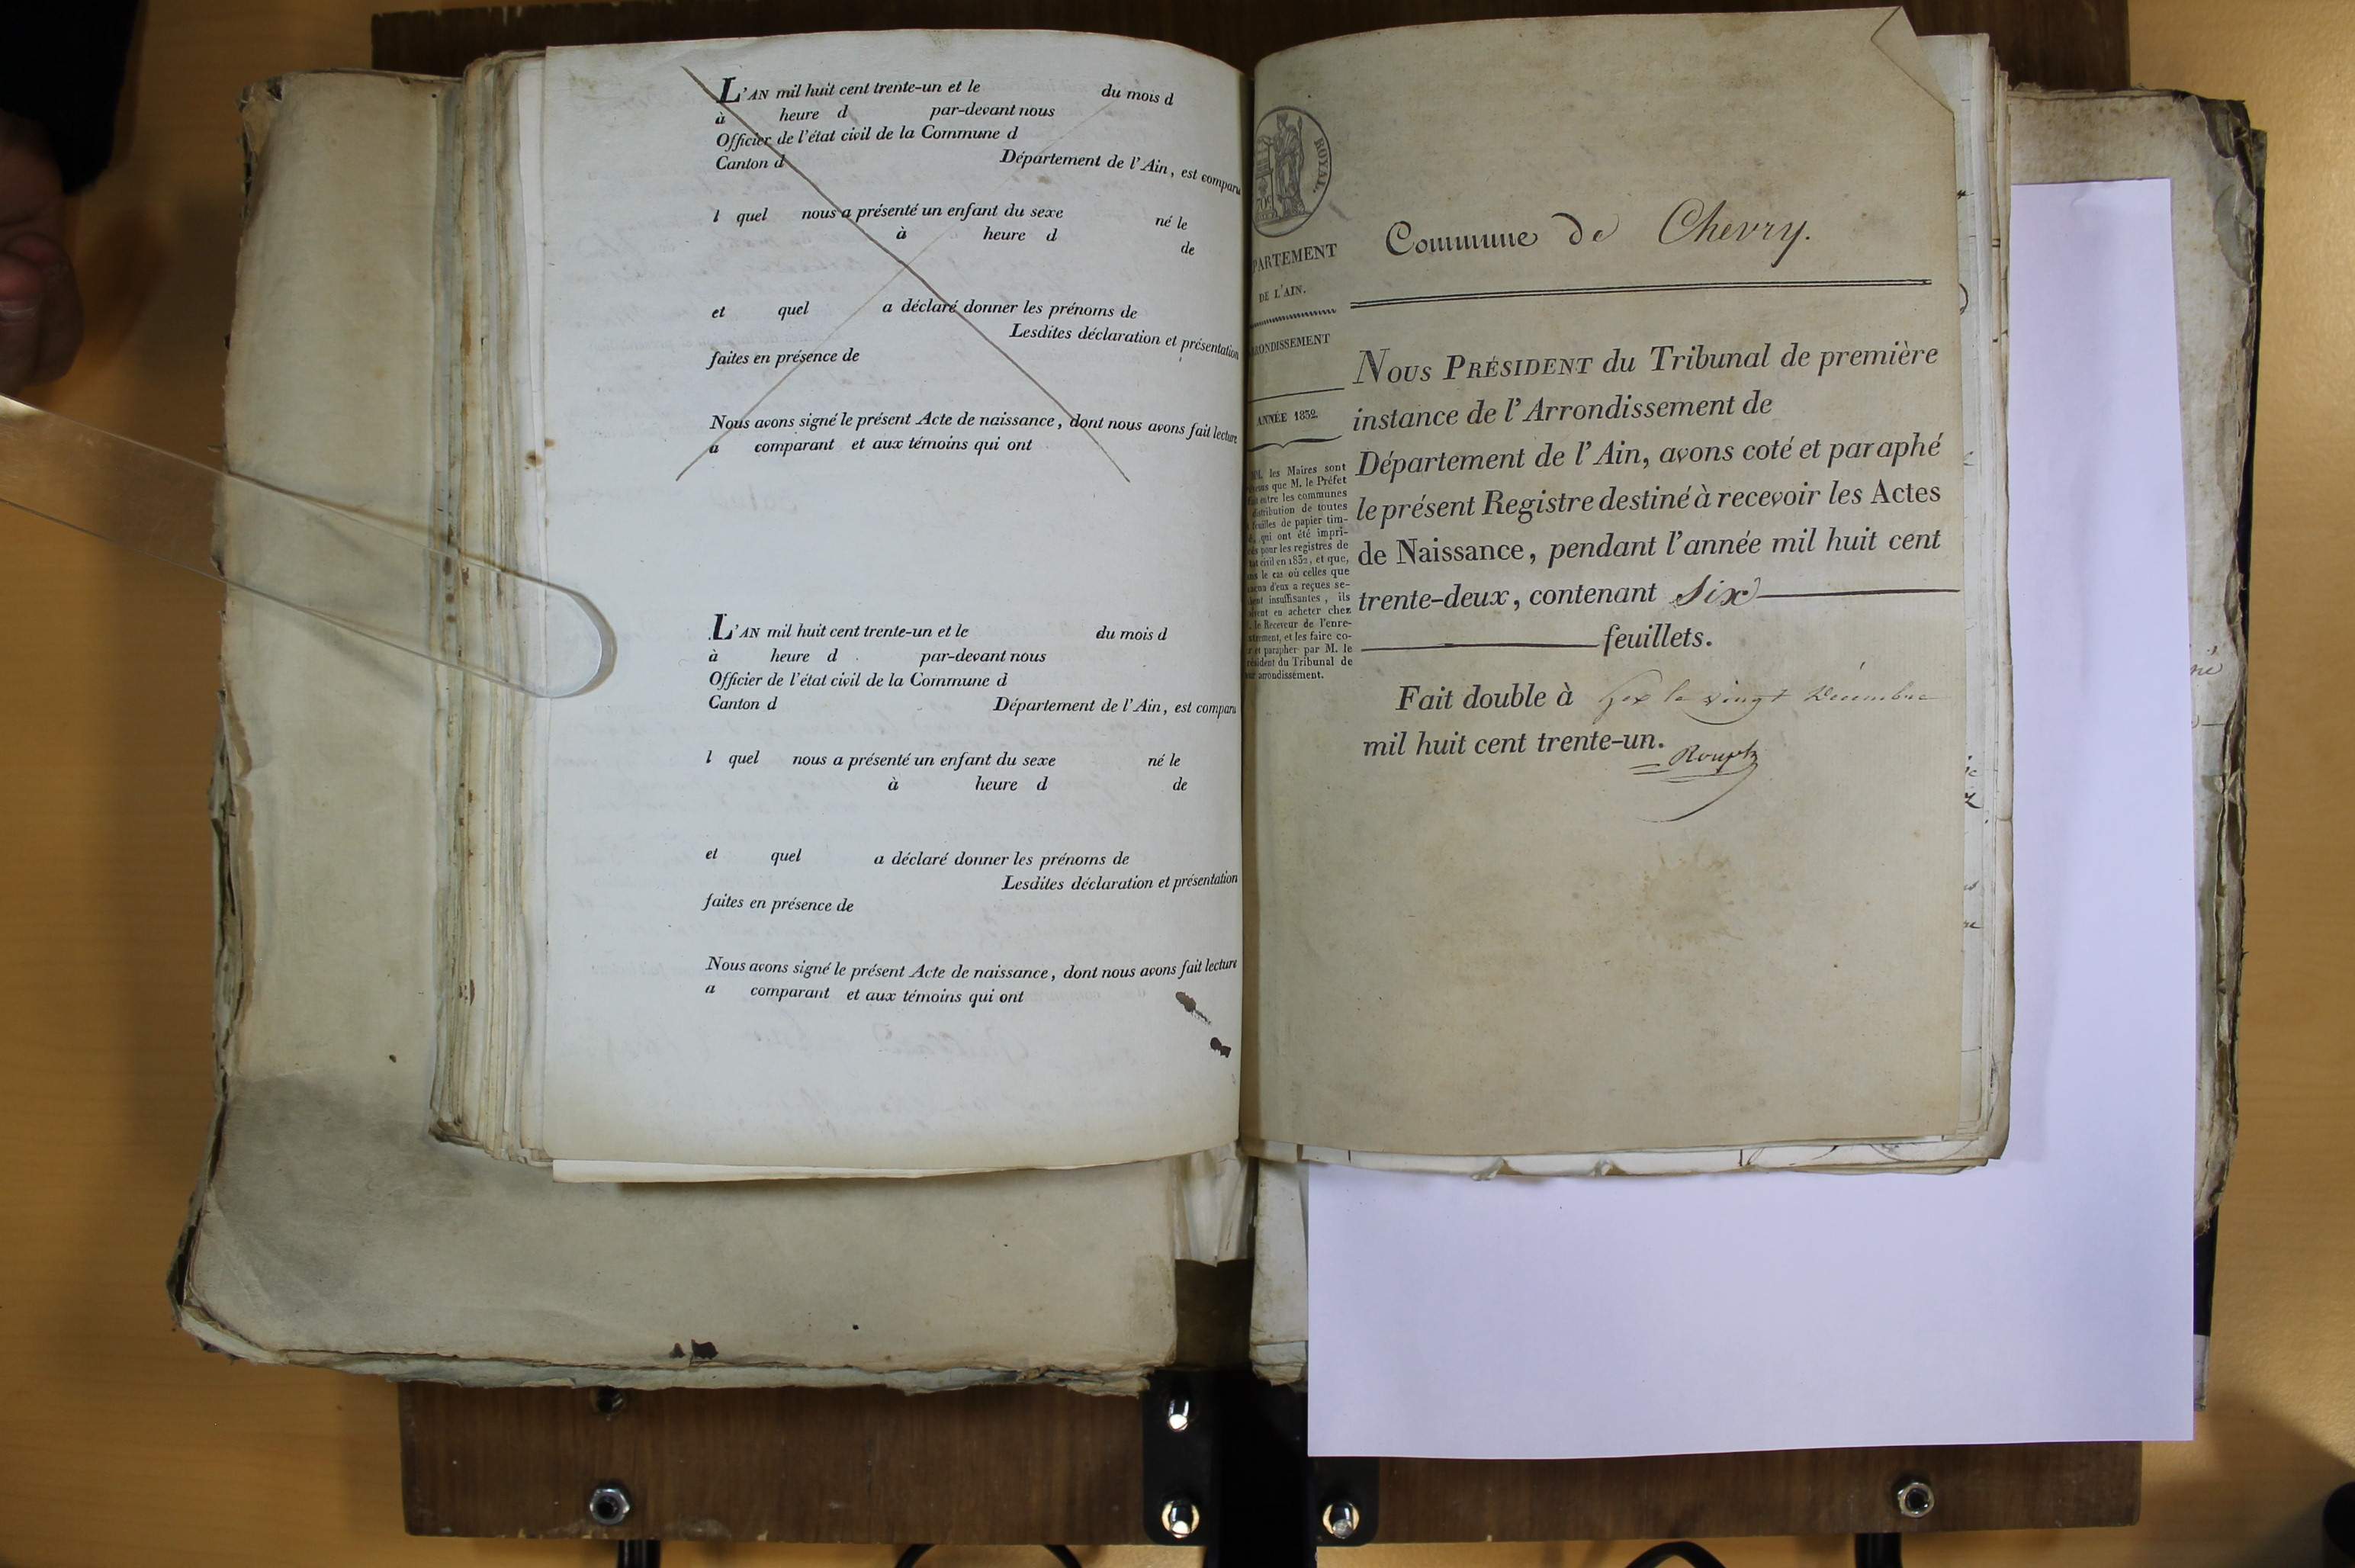 L'AN mil huit cent trente-un et le du mois d
à heure d par-devant nous
Officier de l'état civil de la Commune d
Canton d Département de l'Ain, est comparu
l quel nous a présenté un enfant du sexe né le
à heure d de
et quel a déclaré donner les prénoms de
Lesdites déclaration et présentation
faites en présence de
Nous avons signé le présent Acte de naissance, dont nous avons fait lecture
a comparant et aux témoins qui ont
L'AN mil huit cent trente-un et le du mois d
à heure d par-devant nous
Officier de l'état civil de la Commune d
Canton d Département de l'Ain, est comparu
l quel nous a présenté un enfant du sexe né le
à heure d de
et quel a déclaré donner les prénoms de
Lesdites déclaration et présentation
faites en présence de
Nous avons signé le présent Acte de naissance, dont nous avons fait lecture
a comparant et aux témoins qui ont
ROYAL.
PARTEMENT
DE L'AIN.
RONDISSEMENT
ANNÉE 1832.
les Maires sont
que M. le Préfet
entre les communes
distribution de toutes
feuilles de papier tim-
qui ont été impri-
pour les registres de
civil en 1832, et que,
le cas où celles que
d'eux a reçues se-
insuffisantes, ils
en acheter chez
le Receveur de l'enre-
et les faire co-
et parapher par M. le
du Tribunal de
arrondissement.
Commune de Chevry.
NOUS PRÉSIDENT du Tribunal de première
instance de l'Arrondissement de
Département de l'Ain, avons coté et paraphé
le présent Registre destiné à recevoir les Actes
de Naissance, pendant l'année mil huit cent
trente-deux, contenant Six
feuillets.
Fait double à Gex le vingt Décembre
mil huit cent trente-un.